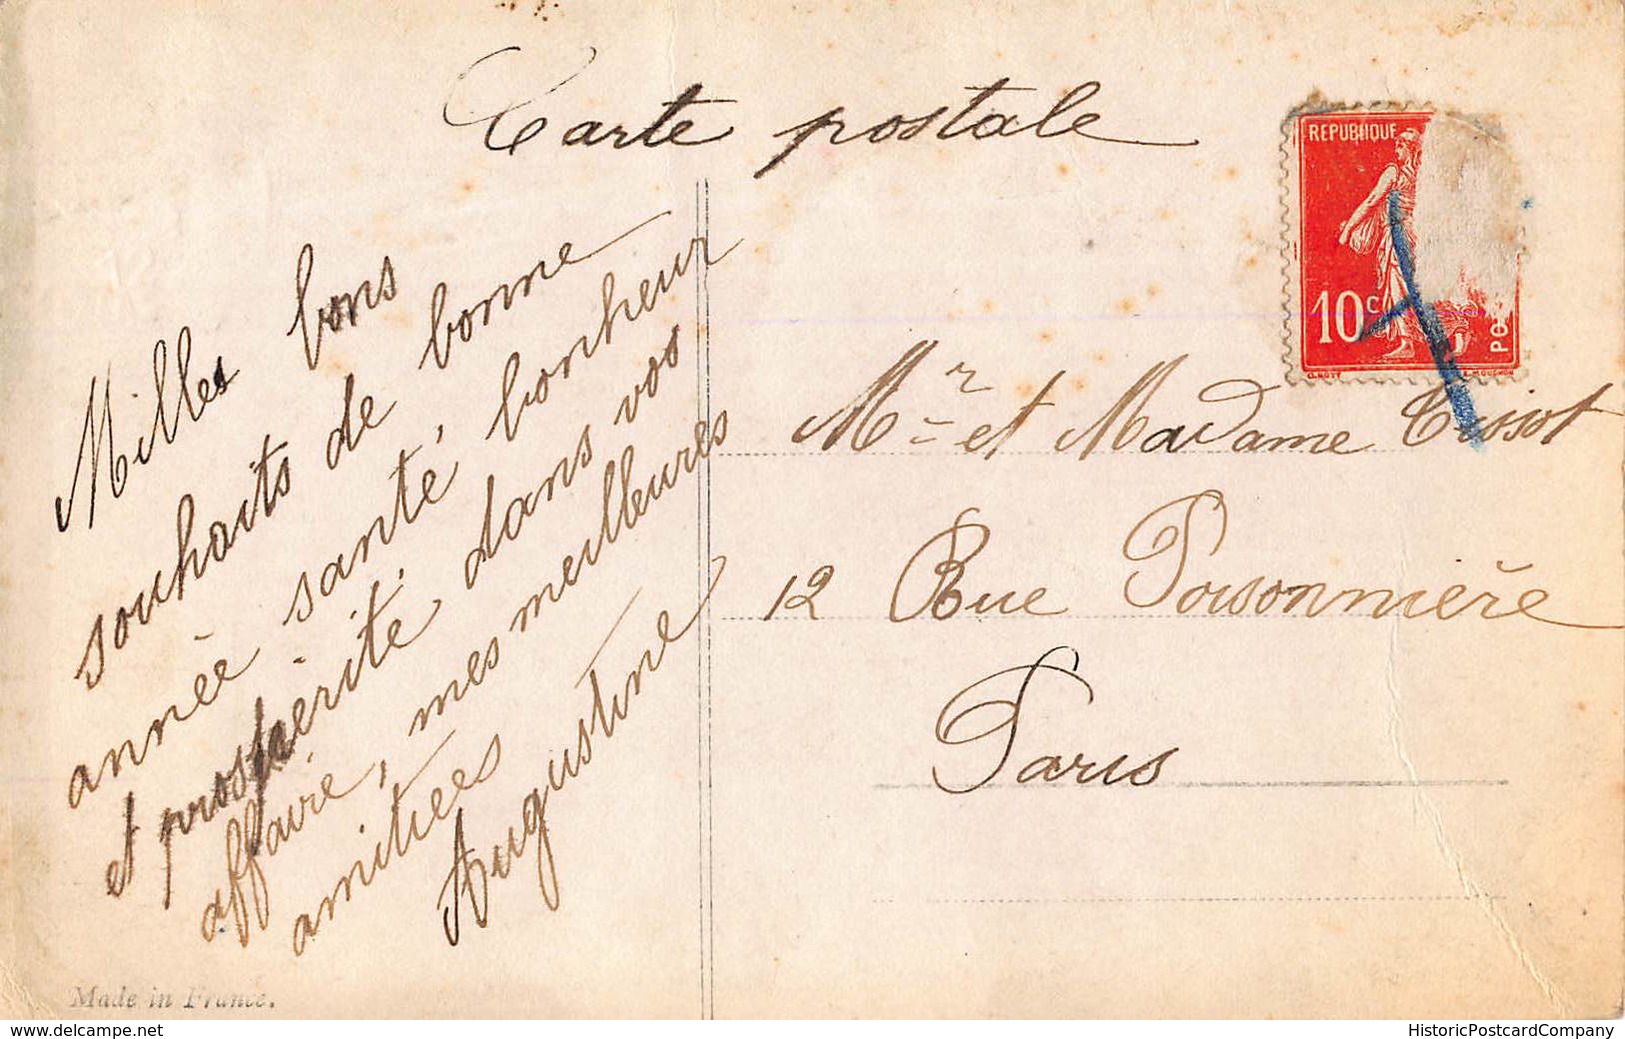 Carte postale
REPUBLIQUE
10c
PO
O. ROTY
L. MOUCHON
Milles bons
souhaits de bonne
année santé, bonheur
et prospérité, dans vos
affaire, mes meilleures
amitiées
Augustine
Mr et Madame Tissot
12 Rue Poisonnière
Paris
Made in France.
www.delcampe.net
HistoricPostcardCompany